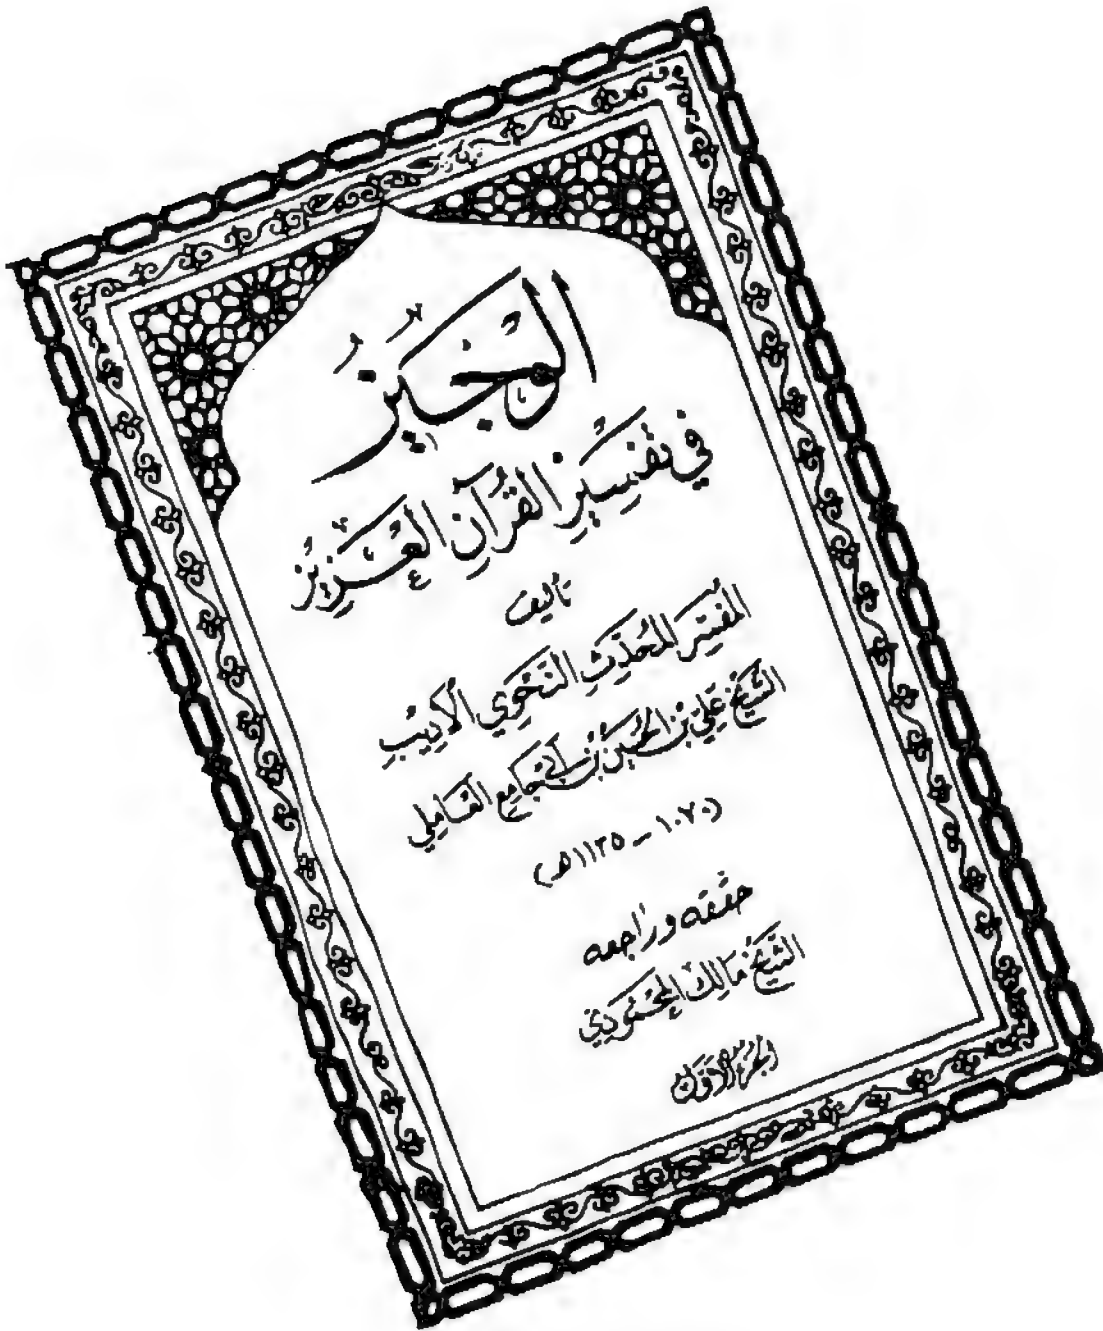 الوجيز
في تفسير القرآن العزيز
تأليف
المفسر المحدث النحوي الأديب
الشيخ علي بن الحسين بن أبي جامع العاملي
(١٠٧٠ - ١١٣٥ هـ)
حققه وراجعه
الشيخ مالك المحمودي
الجزء الأول